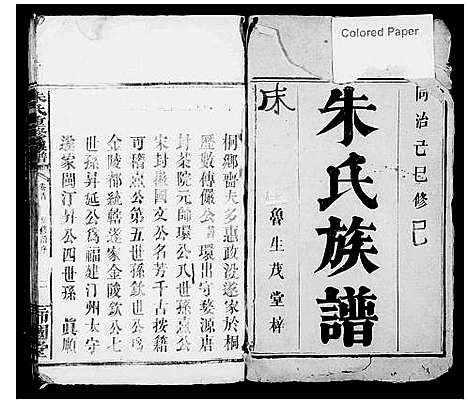 Colored Paper
同治己巳修
朱氏族譜
魯生茂堂梓
桐鄉嗇夫多惠政沒遂家於桐
歷數傳儼公 環出守婺源唐
封茶院元帥環公八世孫熹公
宋封徽國文公名芳千古按籍
可稽熹公第五世孫欽世公為
金陵都統轄遂家金陵欽公七
世孫昇延公爲福建汀州太守
遂家閩汀昇公四世孫 眞順